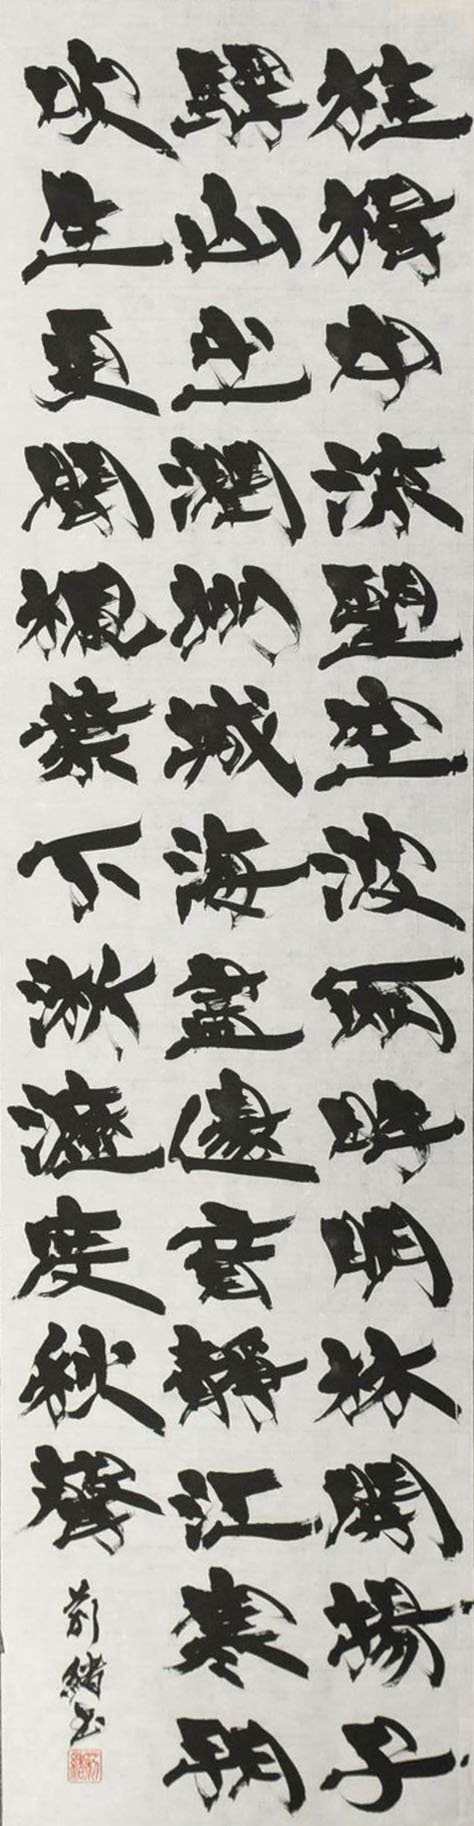 桂楫中流望空波兩畔明林開揚子
驛山出潤州城海盡邊音靜江寒朔
吹生更聞楓葉下淅瀝度秋聲
書